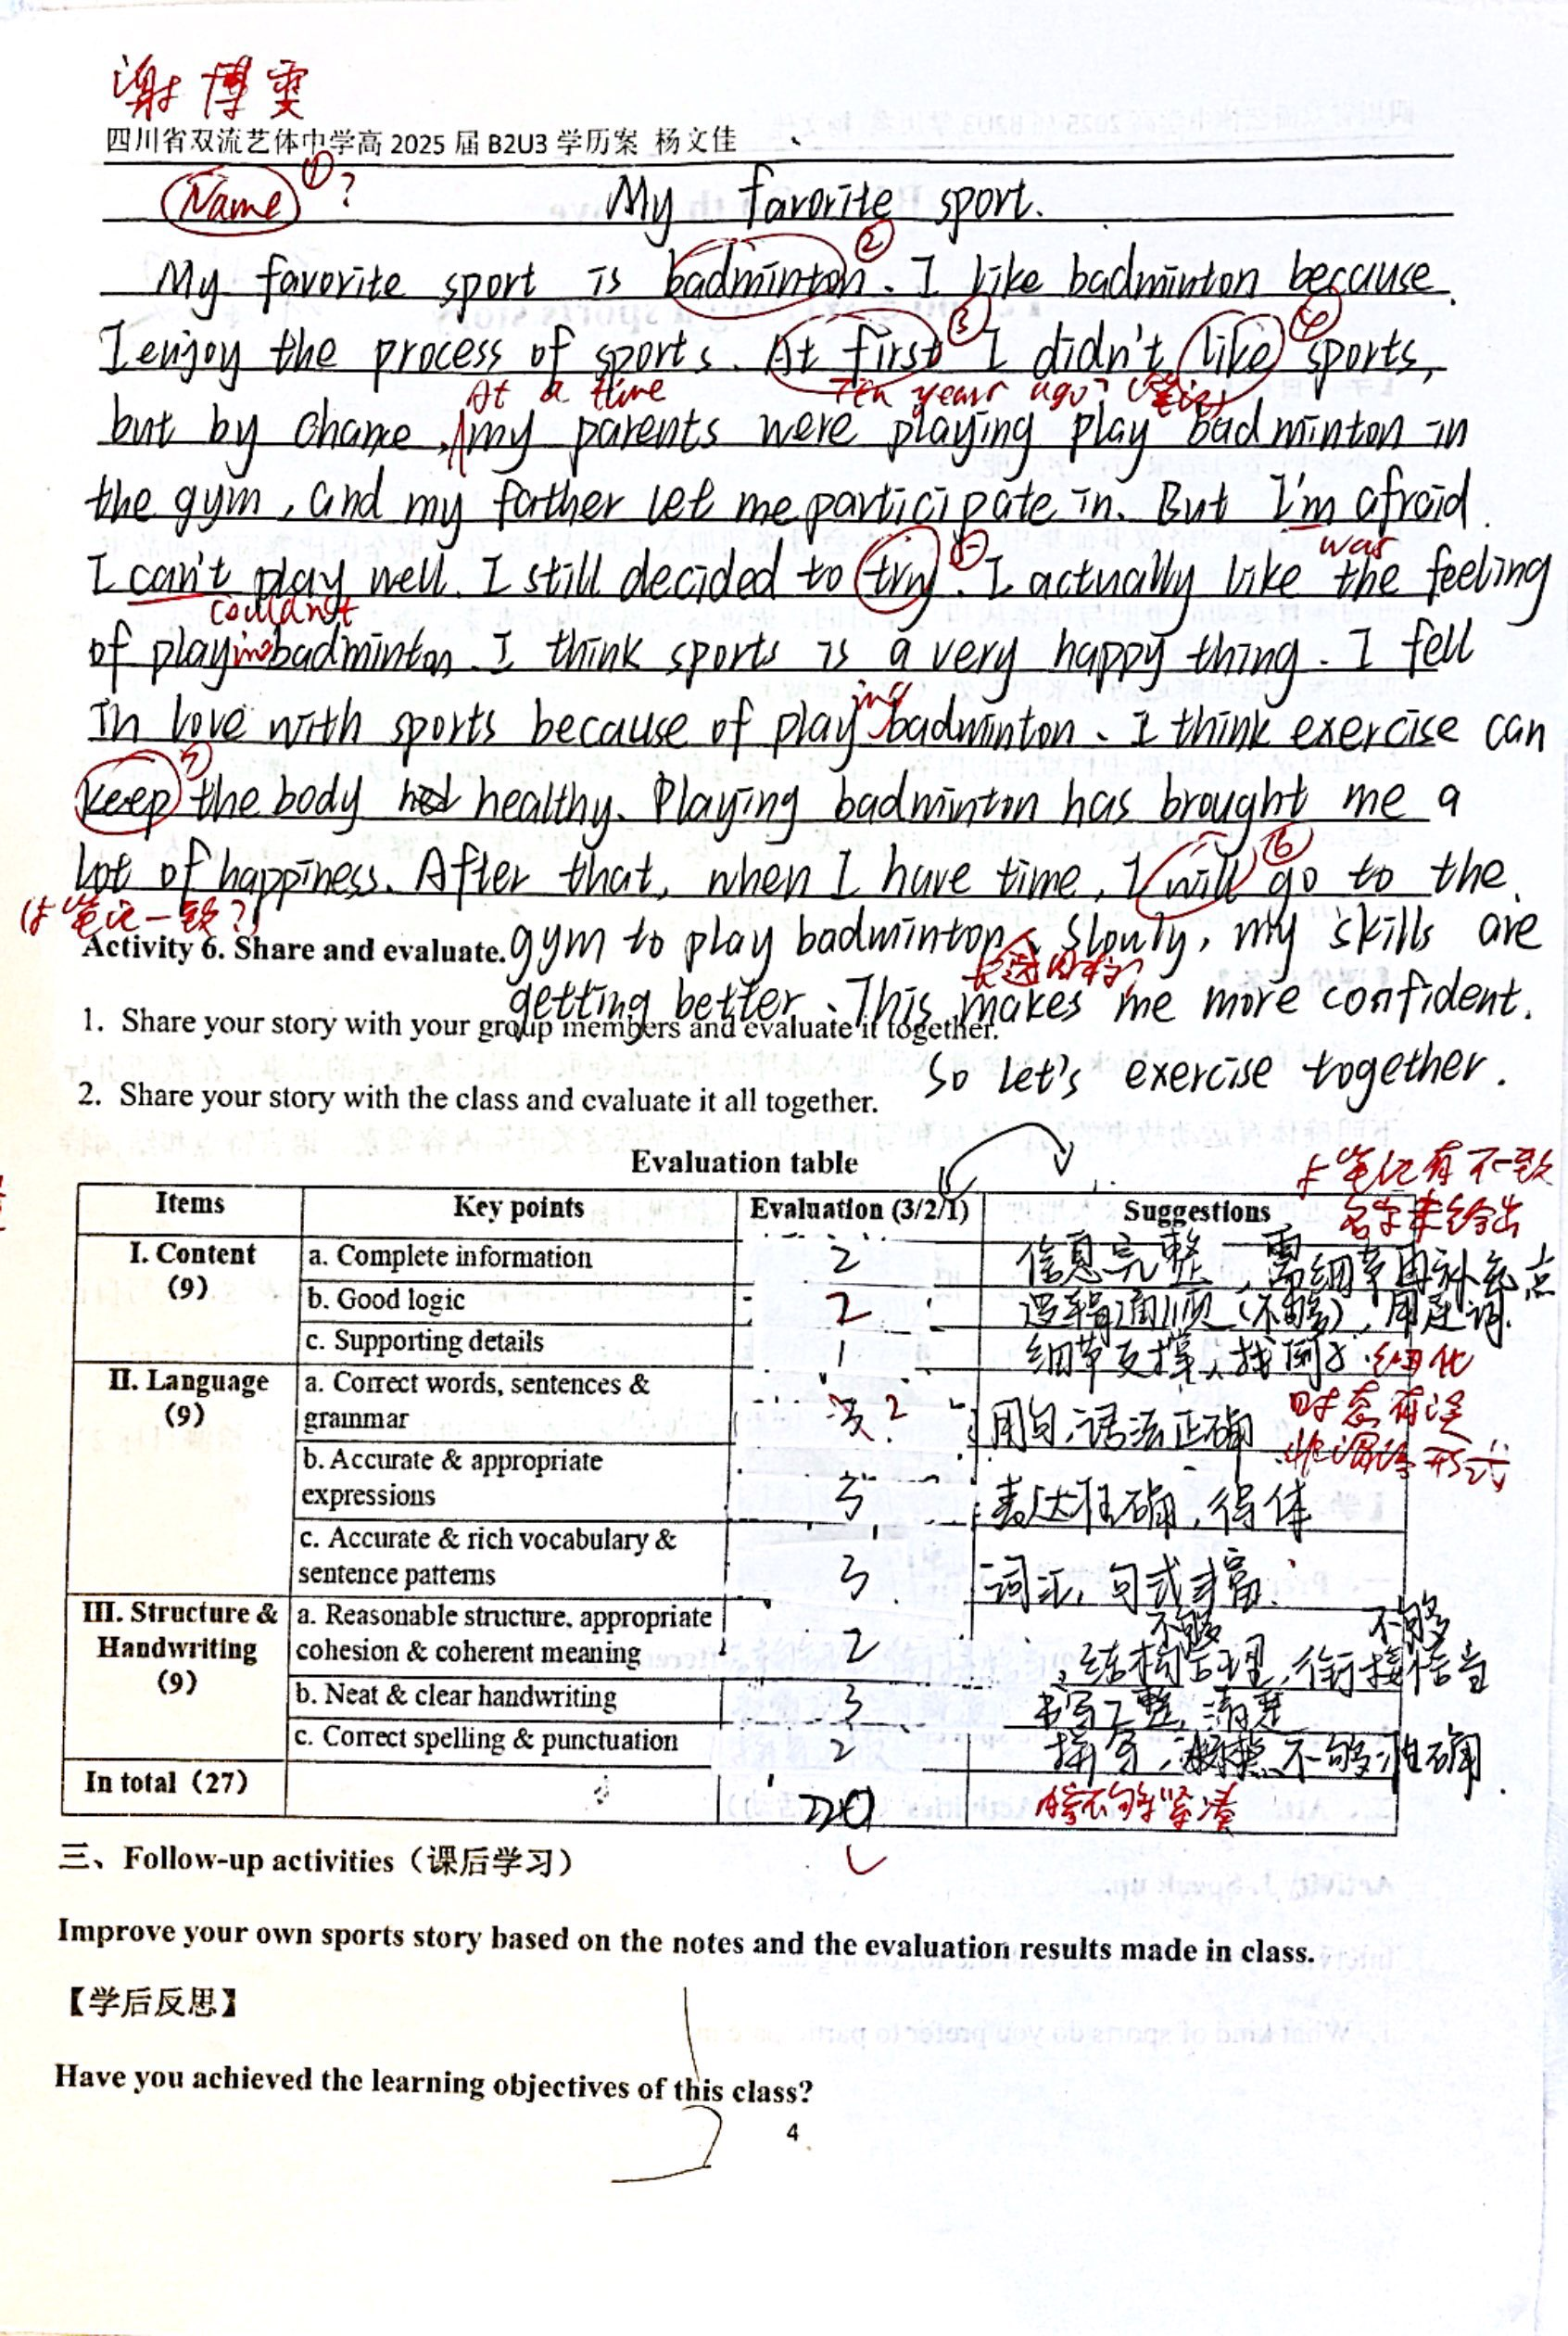 谢博雯
四川省双流艺体中学高 2025 届 B2U3 学历案 杨文佳
Name ① ? My favorite sport.
②
My favorite sport is badminton. I like badminton because
③ ④
I enjoy the process of sports. At first I didn't like sports,
At a time Ten years ago? (笔记)
but by chance, my parents were playing play badminton in
the gym, and my father let me participate in. But I'm afraid
was
I can't play well. I still decided to try. I actually like the feeling
couldn't
of playing badminton. I think sports is a very happy thing. I fell
ing
in love with sports because of play badminton. I think exercise can
keep the body healthy. Playing badminton has brought me a
⑥
lot of happiness. After that, when I have time, I will go to the
笔记一致?)
Activity 6. Share and evaluate. gym to play badminton. Slowly, my skills are
getting better. This makes me more confident.
1. Share your story with your group members and evaluate it together.
So let's exercise together.
2. Share your story with the class and evaluate it all together.
Evaluation table
与笔记有不一致
名字未给出
Items Key points Evaluation (3/2/1) Suggestions
I. Content (9) a. Complete information 2 信息完整,需细节再补充点
b. Good logic 2 逻辑通顺(不够),用连词.
c. Supporting details 1 细节支撑,找例子.细化
II. Language (9) a. Correct words, sentences & grammar 3 2 用句,语法正确 时态有误 非谓语形式
b. Accurate & appropriate expressions 3 表达准确,得体
c. Accurate & rich vocabulary & sentence patterns 3 词汇,句式丰富.
不够 不够
III. Structure & Handwriting (9) a. Reasonable structure, appropriate cohesion & coherent meaning 2 结构合理,衔接恰当
b. Neat & clear handwriting 3 书写工整,清楚
c. Correct spelling & punctuation 2 拼写,标点不够准确.
In total (27) 20 不够紧凑
三、Follow-up activities（课后学习）
Improve your own sports story based on the notes and the evaluation results made in class.
【学后反思】
Have you achieved the learning objectives of this class?
4